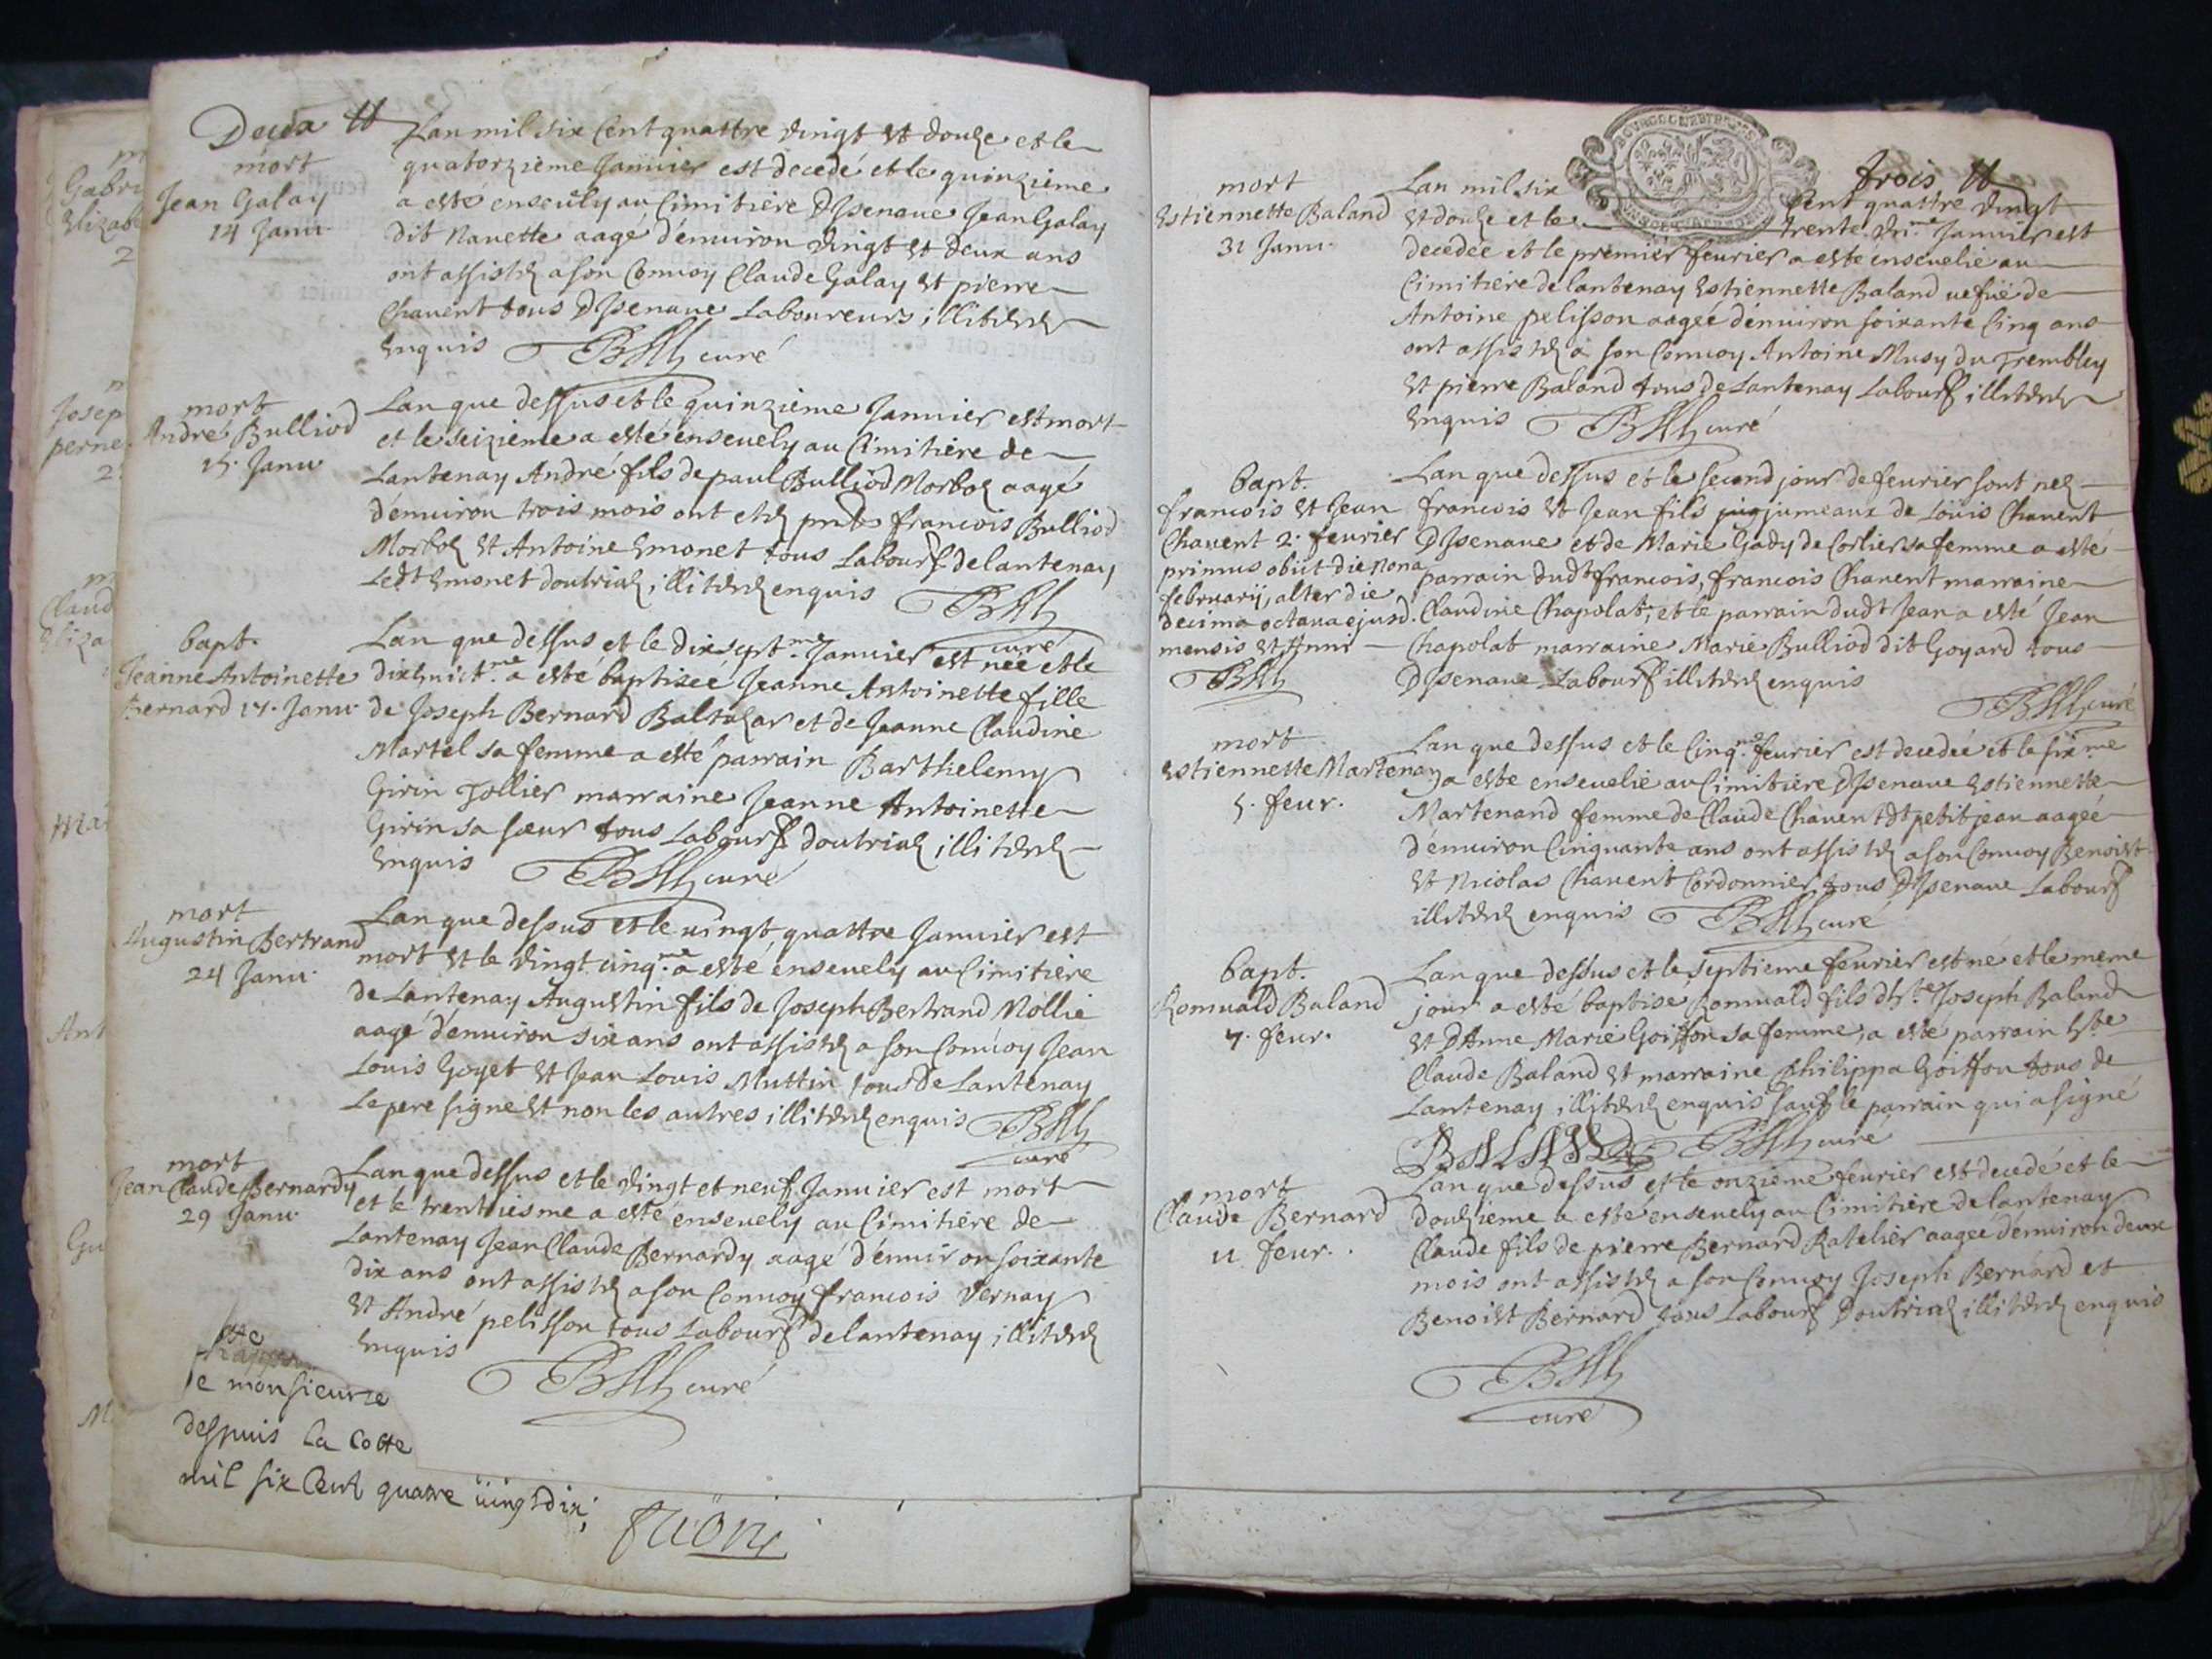 mort
Jean Galay
14 Janu.
Lan mil six Cent quattre vingt et douze et le
quatorzieme Januier est decedé et le quinzieme
a esté enseuely au Cimitiere D'Isenaue Jean Galay
dit Nauette aagé d'enuiron vingt et deux ans
ont assistez a son Conuoy Claude Galay et pierre
Chauent tous D'Isenaue Laboureurs illiterez
enquis curé
mort
André Bulliod
15. Janu.
Lan que dessus et le quinzieme Januier est mort
et le seizieme a esté enseuely au Cimitiere de
Lantenay André fils de paul Bulliod Morboz aagé
d'enuiron trois mois ont etez pnts francois Bulliod
Morboz et Antoine Emonet tous Labours de lantenay
Ledt Emonet doutriaz illiterez enquis
curé
bapt.
Jeanne Antoinette
Bernard 17. Janu.
Lan que dessus et le dix sept.me Januier est née et le
dixhuict.me a esté baptizée Jeanne Antoinette fille
de Joseph Bernard Baltazar et de Jeanne Claudine
Martel sa femme a esté parrain Barthelemy
Girin Tollier marraine Jeanne Antoinette
Girin sa sœur tous Labours doutriaz illiterez
enquis curé
mort
Augustin Bertrand
24 Janu.
Lan que dessus et le uingt quattre Januier est
mort et le vingt cinq.me a esté enseuely au Cimitiere
de Lantenay Augustin fils de Joseph Bertrand Mollie
aagé d'enuiron six ans ont assistez a son Conuoy Jean
Louis Goyet et Jean Louis Muttin tous de Lantenay
Le pere signé et non les autres illiterez enquis
curé
mort
Jean Claude Bernardy
29 Janu.
Lan que dessus et le vingt et neuf Januier est mort
et le trentiesme a esté enseuely au Cimitiere de
Lantenay Jean Claude Bernardy aagé d'enuiron soixante
dix ans ont assistez a son Conuoy francois Vernay
et André pelisson tous Labours de lantenay illiterez
enquis curé
monsieur
despuis la Cotte
mil six Cent quatre uingt dix
trois
mort
Estiennette Baland
31 Janu.
Lan mil six Cent quattre vingt
et douze et le trente un.me Januier est
decedée et le premier feurier a esté enseuelie au
Cimitiere de lantenay Estiennette Baland uefue de
Antoine pelisson aagée d'enuiron soixante Cinq ans
ont assistez a son Conuoy Antoine Musy du Trembley
et pierre Baland tous de Lantenay Labours illiterez
enquis curé
bapt.
francois et Jean
Chauent 2. feurier
primus obiit die nona
februarij, alter die
decima octaua ejusd.
mensis et Anni
Lan que dessus et le second jour de feurier sont nez
francois et Jean fils jumeaux de Loüis Chauent
D'Isenaue et de Marie Gady de Corlier sa femme a esté
parrain dudt francois, francois Chauent marraine
Claudine Chapolat, et le parrain dudt Jean a esté Jean
Chapolat marraine Marie Bulliod dit Goyard tous
D'Isenaue Labours illiterez enquis
curé
mort
Estiennette Martenand
5. feur.
Lan que dessus et le Cinq.me feurier est decedée et le six.me
a esté enseuelie au Cimitiere D'Isenaue Estiennette
Martenand femme de Claude Chauent dt petit jean aagée
d'enuiron Cinquante ans ont assistez a son Conuoy Benoist
et Nicolas Chauent Cordonnier tous D'Isenaue Labours
illiterez enquis curé
bapt.
Romuald Baland
7. feur.
Lan que dessus et le septieme feurier est né et le meme
jour a esté baptisé Romuald fils d'h.te Joseph Baland
et D'Anne Marie Goiffon sa femme, a esté parrain
Claude Baland et marraine Philippa Goiffon tous de
Lantenay illiterez enquis sauf le parrain qui a signé
BALAND curé
mort
Claude Bernard
11 feur.
Lan que dessus et le onzieme feurier est decedé et le
douzieme a esté enseuely au Cimitiere de lantenay
Claude fils de pierre Bernard Ratelier aagée d'enuiron deux
mois ont assistez a son Conuoy Joseph Bernard et
Benoist Bernard tous Labours Doutriaz illiterez enquis
curé